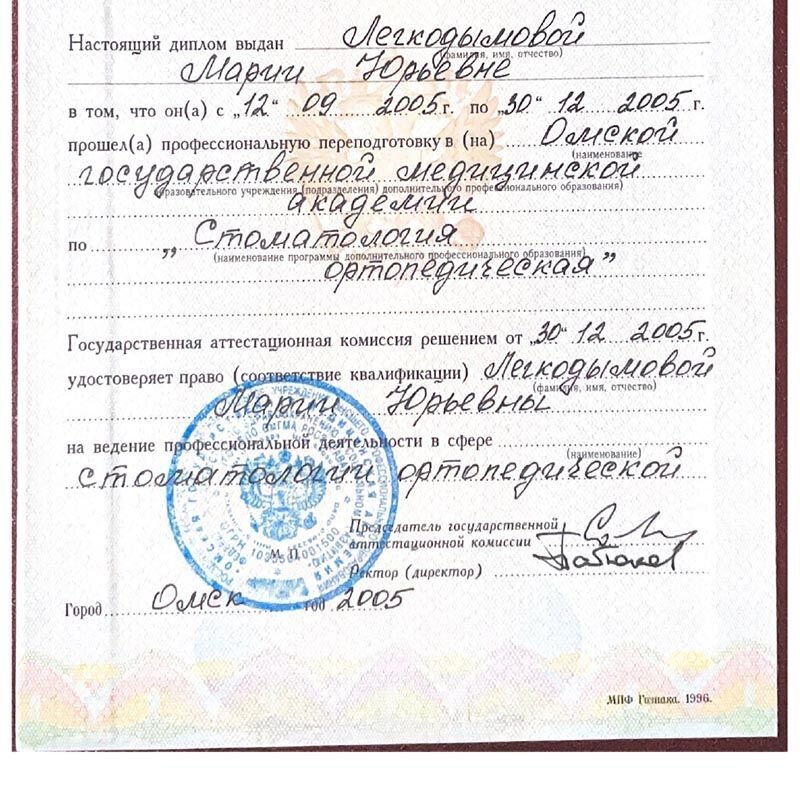 Настоящий диплом выдан Легкодымовой
(фамилия, имя, отчество)
Марии Юрьевне
в том, что он(а) с „12“ 09 2005 г. по „30“ 12 2005 г.
прошел(а) профессиональную переподготовку в (на) Омской
(наименование
государственной медицинской
образовательного учреждения (подразделения) дополнительного профессионального образования)
академии
по „Стоматология
(наименование программы дополнительного профессионального образования)
ортопедическая”
Государственная аттестационная комиссия решением от „30“ 12 2005 г.
удостоверяет право (соответствие квалификации) Легкодымовой
(фамилия, имя, отчество)
Марии Юрьевны
на ведение профессиональной деятельности в сфере
(наименование)
стоматологии ортопедической
Председатель государственной
аттестационной комиссии
М. П.
Ректор (директор)
Город Омск год 2005
МПФ Гознака. 1996.